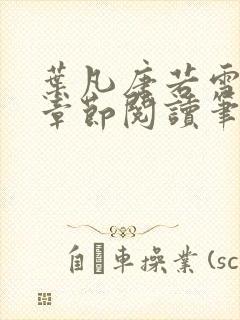 葉凡唐若雪
章節閱讀筆
自車操業(sc